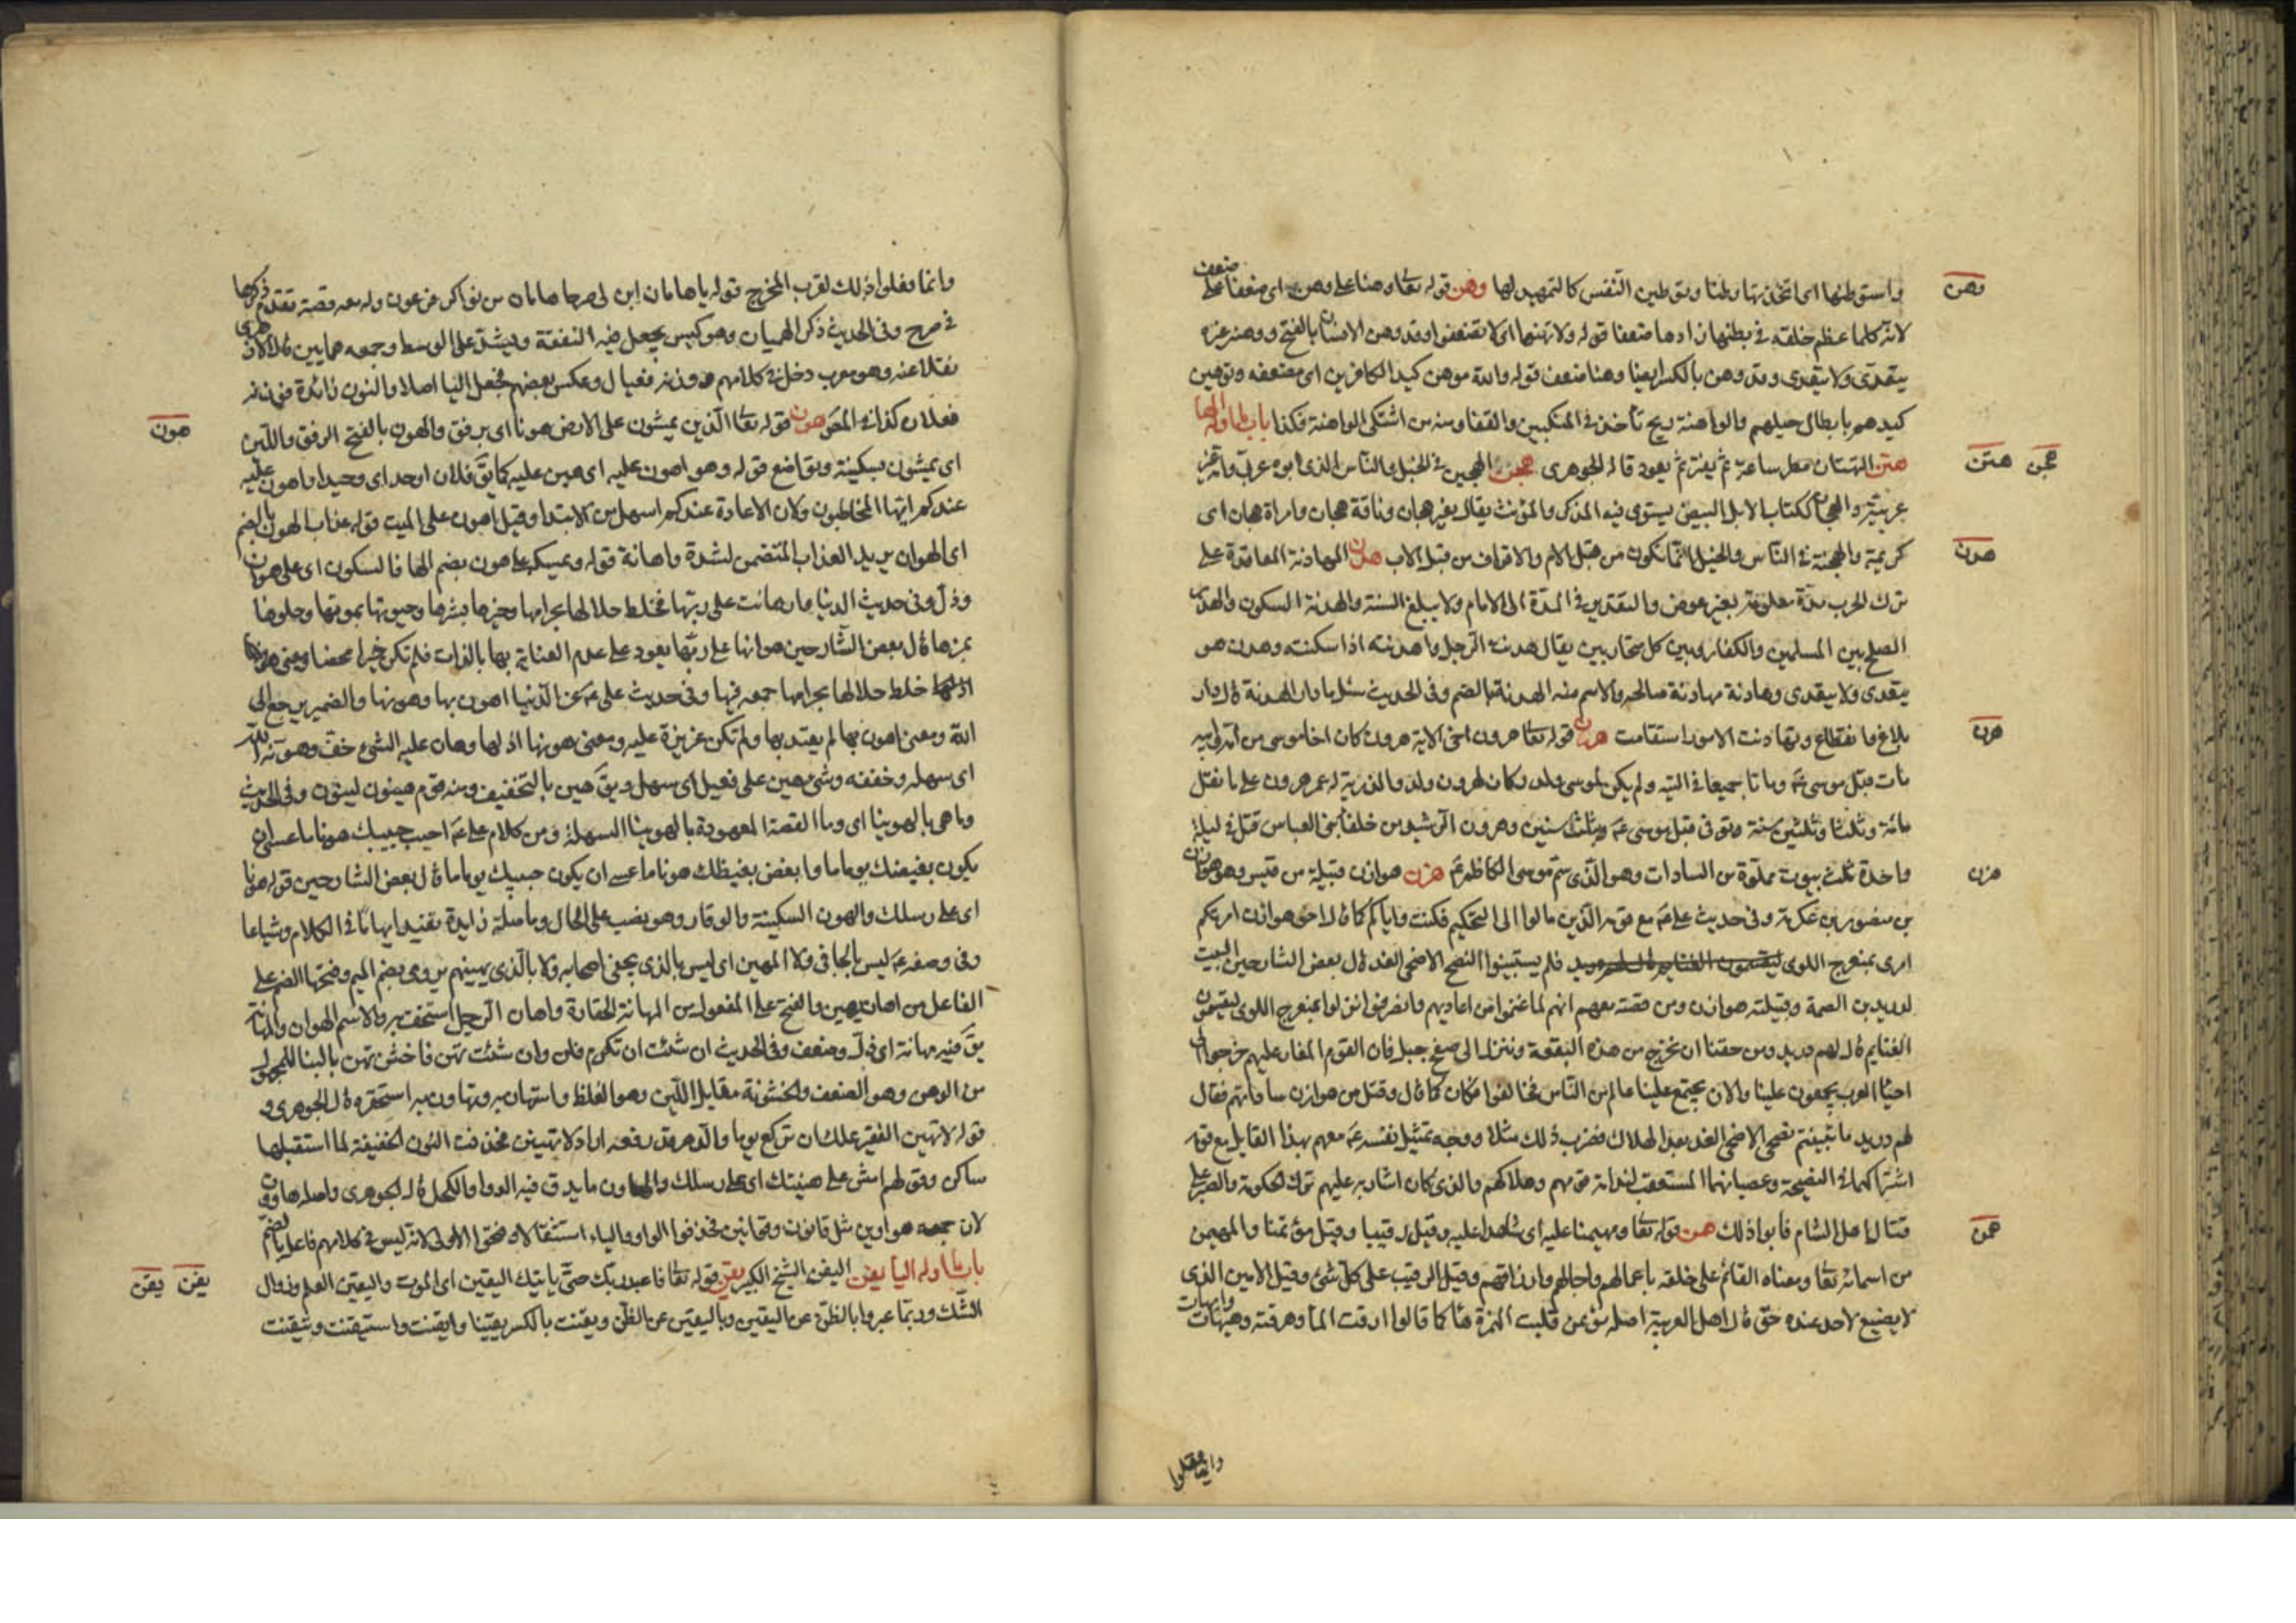 وهن
واستوطنها اى اتخذتها وطنا وتوطين النفس كالتمهيد لها وهن قوله تعا وهنا على وهن اى ضعفا على
ضعف
لانه كلما عظم خلقه فى بطنها زادها ضعفا قوله ولا تهنوا اى لا تضعفوا وقد وهن الانسان بالفتح ووهنه غيره
يتعدى ولا يتعدى وقد وهن بالكسر ايضا وهنا ضعف قوله والله موهن كيد الكافرين اى مضعفه وتوهين
كيدهم بابطال حيلهم والواهنة ريح تأخذ فى المنكبين والقفا ومنه من اشتكى الواهنة فكذا باب ما اوله الها
هجن هتن
هتن التهتان مطر ساعة ثم يفتر ثم يعود قاله الجوهرى هجن الهجين فى الخيل والناس الذى ابوه عربى وامه غير
عربية والهجان ككتاب الابل البيض يستوى فيه المذكر والمؤنث يقال بعير هجان وناقة هجان وامراة هجان اى
هدن
كريمة والهجنة فى الناس والخيل انما تكون من قبل الام والاقراف من قبل الاب هدن المهادنة المعاقدة على
ترك الحرب مدة معلومة بغير عوض والتقدير فى المدة الى الامام ولا يبلغ السنة والهدنة السكون والهدنة
الصلح بين المسلمين والكفار وبين كل متحاربين يقال هدنت الرجل واهدنته اذا سكنته وهدن هو
يتعدى ولا يتعدى وهادنة مهادنة صالحه والاسم منه الهدنة بالضم وفى الحديث سئل ما دار الهدنة قال دار
هرن
بلاغ وانقطاع وتهادنت الامور استقامت هرن قوله تعا هرون اخى الاية هرون كان اخا موسى من امه وابيه
مات قبل موسى ع وماتا جميعا فى التيه ولم يكن لموسى ولد وكان لهرون ولد والذرية له عمر هرون على ما نقل
مائة وثلثا وثلثين سنة وتوفى قبل موسى ع بثلث سنين وهرون الرشيد من خلفا بنى العباس قتل فى ليلة
هزن
واحدة ثلث بيوت مملوة من السادات وهو الذى سم موسى الكاظم ع هزن هوازن قبيلة من قيس وهو هوازن
بن منصور بن عكرمة وفى حديث على ع مع قومه الذين مالوا الى التحكيم فكنت واياكم كما قال اخو هوازن امرتكم
امرى بمنعرج اللوى فلم يستبينوا النصح الا ضحى الغد قال بعض الشارحين البيت
لدريد بن الصمة وقبيلته هوازن ومن قصته معهم انهم لما غنموا من اعاديهم وانصرفوا نزلوا بمنعرج اللوى يقسمون
الغنايم قال لهم دريد ومن حقنا ان نخرج من هذه البقعة وننزل الى صفح جبل فان القوم المغار عليهم خرجوا الى
احيا العرب يجمعون علينا والان يجتمع علينا عالم من الناس فخالفوا فكان كما قال وقتل من هوازن ساداتهم فقال
لهم دريد ما تبينتم نصحى الا ضحى الغد بعد الهلاك فضرب ذلك مثلا ووجه تمثيل نفسه ع معهم بهذا القايل مع قومه
اشتراكهما فى النصيحة وعصيانهما المستعقب لندامة قومهم وهلاكهم والذى كان اشار به عليهم ترك الحكومة والصبر على
همن
قتال اهل الشام فابوا ذلك همن قوله تعا ومهيمنا عليه اى شاهدا عليه وقيل رقيبا وقيل مؤتمنا والمهيمن
من اسمائه تعا ومعناه القائم على خلقه باعمالهم واجالهم وارزاقهم وقيل الرقيب على كل شئ وقيل الامين الذى
لا يضيع لاحد عنده حق قال اهل العربية اصله مؤيمن قلبت الهمزة هأ كما قالوا ارقت المأ وهرقته وهيهات
وايهات
وانما فعلوا
وانما فعلوا ذلك لقرب المخرج قوله يا هامان ابن لى صرحا هامان من نواكر فرعون وله معه قصة تقدم ذكرها
فى صرح وفى الحديث ذكر الهميان وهو كيس يجعل فيه النفقة ويشد على الوسط وجمعه همايين قال الازهرى
نقلا عنه وهو معرب دخل فى كلامهم ووزنه فعيال وعكس بعضهم فجعل اليا اصلا والنون زائدة فوزنه
هون
فعلان كذا فى المص هون قوله تعا الذين يمشون على الارض هونا اى برفق والهون بالفتح الرفق واللين
اى يمشون بسكينة وتواضع قوله وهو اهون عليه اى هين عليه كما يق فلان اوحد اى وحيد او اهون عليه
عندكم ايها المخاطبون ولان الاعادة عندكم اسهل من الابتدا وقيل اهون على الميت قوله عذاب الهون بالضم
اى الهوان يريد العذاب المتضمن لشدة واهانة قوله ويمسكه على هون بضم الها فالسكون اى على هوان
وذل وفى حديث الدنيا دار هانت على ربها فخلط حلالها بحرامها وخيرها بشرها وحيوتها بموتها وحلوها
بمرها قال بعض الشارحين هوانها على ربها يعود على عدم العناية بها بالذات فلم تكن خيرا محضا ومعنى هونها
اذلها خلط حلالها بحرامها جمعه فيها وفى حديث على ع عن الدنيا اهون بها وهونها والضمير يرجع الى
الله ومعنى اهون بها لم يعتد بها ولم تكن عزيزة عليه ومعنى هونها اذلها وهان عليه الشئ خف وهونه الله
اى سهله وخففه وشئ هين على فعيل اى سهل ويق هين بالتخفيف ومنه قوم هينون لينون وفى الحديث
وما هى بالهوينا اى وما القصة المعهودة بالهوينا السهلة ومن كلام على ع احبب حبيبك هونا ما عسى ان
يكون بغيضك يوما ما وابغض بغيظك هونا ما عسى ان يكون حبيبك يوما ما قال بعض الشارحين قوله هونا
اى على رسلك والهون السكينة والوقار وهو نصب على الحال وما صلة زايدة تفيد ابهاما فى الكلام وشياعا
وفى وصفه ع ليس بالجافى ولا المهين اى ليس بالذى يجفى اصحابه ولا بالذى يهينهم يروى بضم الميم وفتحها الضم على
الفاعل من اهان يهين والفتح على المفعول من المهانة الحقارة واهان الرجل استخف به والاسم الهوان والمهانة
يق فيه مهانة اى ذل وضعف وفى الحديث ان شئت ان تكرم فلن وان شئت تهن فاخشن تهن بالبنا للمجهول
من الوهن وهو الضعف والخشونة مقابل اللين وهو الغلظ واستهان به وتهاون به استحقره قال الجوهرى و
قوله لا تهين الفقير علك ان تركع يوما والدهر قد رفعه اراد لا تهينن فحذفت النون الخفيفة لما استقبلها
ساكن وقولهم امش على هينتك اى على رسلك والهاون ما يدق فيه الدوا والكحل قال الجوهرى واصله هاوون
لان جمعه هواوين مثل قانون وقوانين فحذفوا الواو والياء استثقالا وفتحوا الاولى لانه ليس فى كلامهم فاعل بالضم
يفن يقن
باب ما اوله اليأ يفن اليفن الشيخ الكبير يقن قوله تعا فاعبد ربك حتى ياتيك اليقين اى الموت واليقين العلم وزوال
الشك وربما عبروا بالظن عن اليقين وباليقين عن الظن ويقنت بالكسر يقينا وايقنت واستيقنت وتيقنت